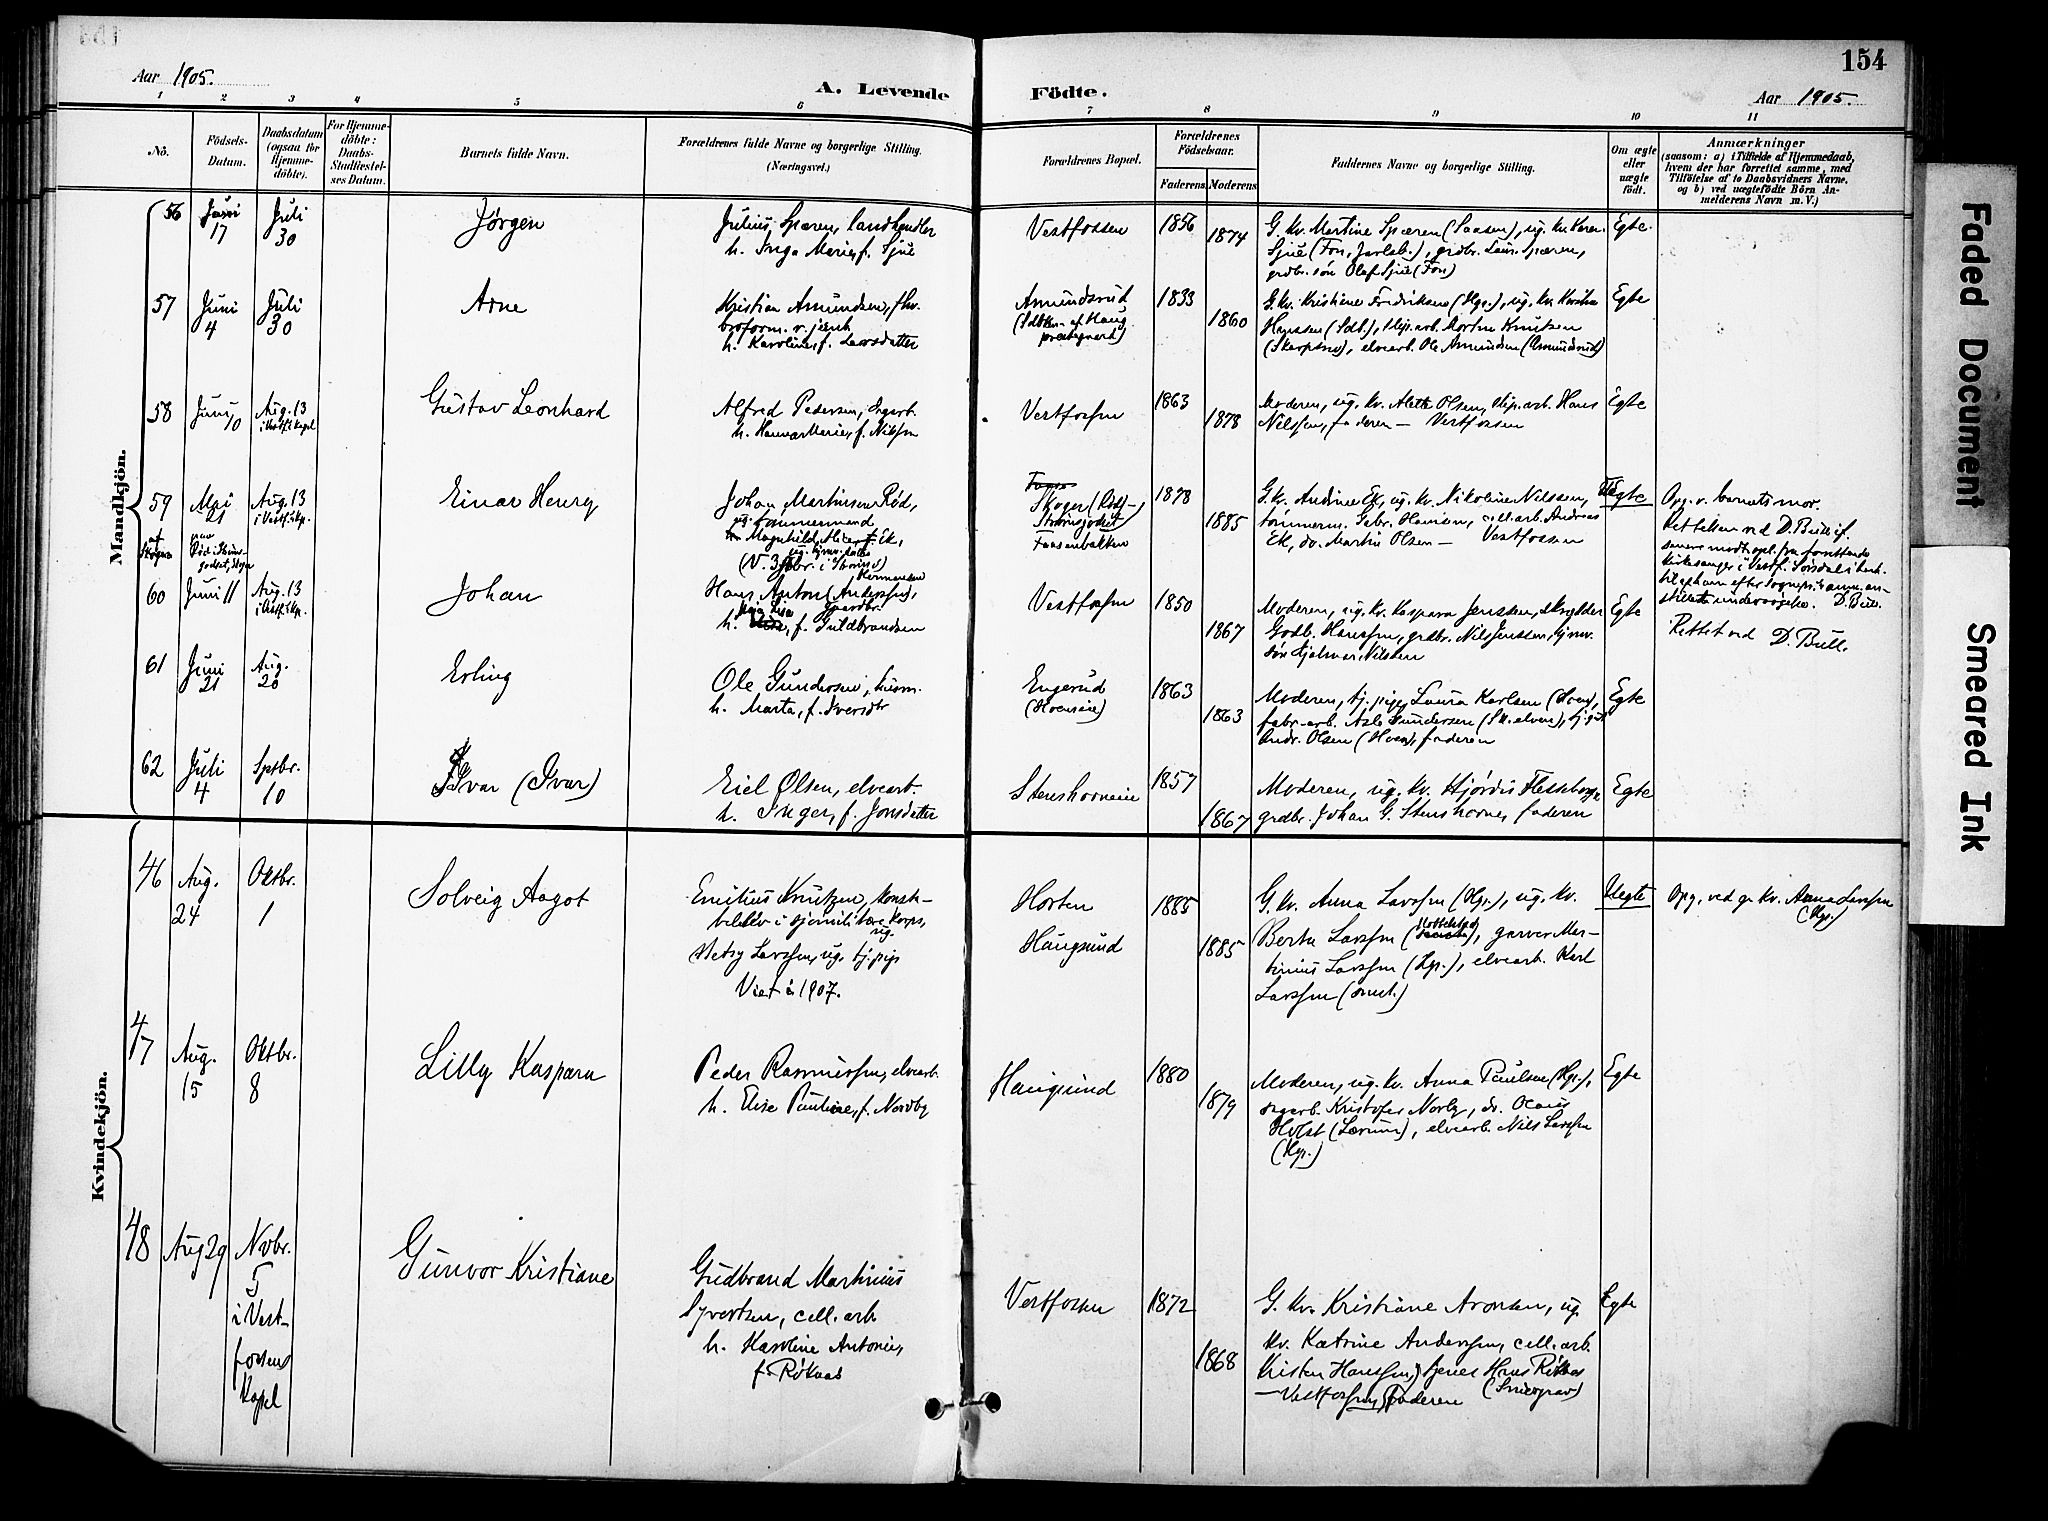 154
Aar 1905.
A. Levende Födte.
Aar 1905.
1 2 3 4 5 6 7 8 9 10 11
No.
Födsels-
Datum.
Daabsdatum
(ogsaa for
Hjemme-
döbte).
For Hjemme-
döbte:
Daabs-
Stadfæstel-
ses Datum.
Barnets fulde Navn.
Forældrenes fulde Navne og borgerlige Stilling.
(Næringsvei.)
Forældrenes Bopæl.
Forældrenes
Födselsaar.
Faderens. Moderens.
Faddernes Navne og borgerlige Stilling.
Om ægte
eller
uægte
födt.
Anmærkninger
(saasom: a) i Tilfælde af Hjemmedaab,
hvem der har forrettet samme, med
Tilföielse af to Daabsvidners Navne.
og b) ved uægtefödte Börn An-
melderens Navn m. V.)
Mandkjön.
56
Juni
17
Juli
30
Jørgen
Julius Spæren, landhandler
h. Inga Marie, f. Sjue
Vestfossen
1856
1874
G. kv. Martine Spæren (Saasen), ug. kv. Karen
Sjue (Fon, Jarlsb.), grdbr. Laur. Spæren,
grdbr. søn Olaf Sjue (Fon)
Egte.
57
Juni
4
Juli
30
Arne
Kristian Amundsen, fhv.
broform. v. jernb.
h. Karoline, f. Larsdatter
Amundsrud
af Haug
præstegaard)
1833
1860
G. kv. Kristine Fredriksen (Hgs.), ug. kv.
Hanssen (Sdb.), slip. arb. Morten Knutsen
elvearb. Ole Amundsen (Amundsrud)
Egte
58
Juni
10
Aug. 13
i Vestf. kapel
Gustav Leonhard
Alfred Pedersen,
h. Hanna Marie, f. Nilssen
Vestfossen
1863
1878
Moderen, ug. kv. Alette Olsen, slip. arb. Hans
Nilssen, faderen — Vestfossen
Egte
59
Mai
21
Aug. 13
i Vestf. kp.
Einar Henry
Johan Martinsen Rød,
ug. tømmermand
Magnhild Alice Ek,
Skoger (Rød –
Faasenbakken
1878
1885
G. kv. Andrine Ek, ug. kv. Nikoline Nilssen,
tømmerm. Gabr. Hansen, cell. arb. Andreas
Ek, do. Martin Olsen — Vestfossen
Uegte
Opg. v. barnets mor.
Rettelsen ved D. Bull if.
60
Juni 11
Aug. 13
i Vestf. kp.
Johan
Hans Anton (Anderssen) Hermansen,
gaardbr.
h. f. Guldbrandsen
Vestfossen
1850
1867
Moderen, ug. kv. Kaspara Jenssen, skrædder
Gudb. Hanssen, grdbr. Nils Jenssen,
søn Hjalmar Nilsen
Egte
Rettet ved D. Bull.
61
Juni
21
Aug.
20
Erling
Ole Gundersen, husm.
h. Marta, f. Iversdtr
Engerud
(Hoenseie)
1863
1863
Moderen, tj. pige Laura Karlsen (Hoen),
fabr. arb. Axle Gundersen (St. elven),
Andr. Olsen (Hoen), faderen
Egte
62
Juli
4
Sptbr.
10
Ivar (Ivar)
Eiel Olsen, elvearb.
h. Inger, f. Jonsdatter
Stenshorneie
1857
1867
Moderen, ug. kv. Hjørdis Flesseberg,
grdbr. Johan G. Stenshorne, faderen
Egte
Kvindekjön.
46
Aug.
24
Oktbr.
1
Solveig Aagot
Emilius Knutzen, konst-
belelev i sjømilitære korps,
ug.
Betsy Larssen, ug. tj. pige
Viet i 1907.
Horten
Haugsund
1885
1885
G. kv. Anna Larssen (Hgs.), ug. kv.
Berta Larssen garver Mar-
tinius Larssen (Hgs.), elvearb. Karl
Larssen
Uegte
Opg. ved g. kv. Anna Larssen
(Hgs.)
47
Aug.
15
Oktbr.
8
Lilly Kaspara
Peder Rasmussen, elvearb.
h. Elise Pauline, f. Nordby
Haugsund
1880
1879
Moderen, ug. kv. Anna Paulsen (Hgs.),
sagarb. Kristofer Norby, do. Olaus
Holst (Lærum), elvearb. Nils Larssen
(Hgs.)
Egte
48
Aug 29
Nvbr.
5
i Vest-
fossens
Kapel
Gunvor Kristiane
Gudbrand Martinius
Syvertsen, cell. arb.
h. Karoline Antonie,
f. Røknas
Vestfossen
1872
1868
G. kv. Kristiane Aronsen, ug.
kv. Katrine Anderssen, cell. arb.
Kristen Hanssen, tjener Hans Røknas
— Vestfossen, faderen
Egte
Faded Document
Smeared Ink